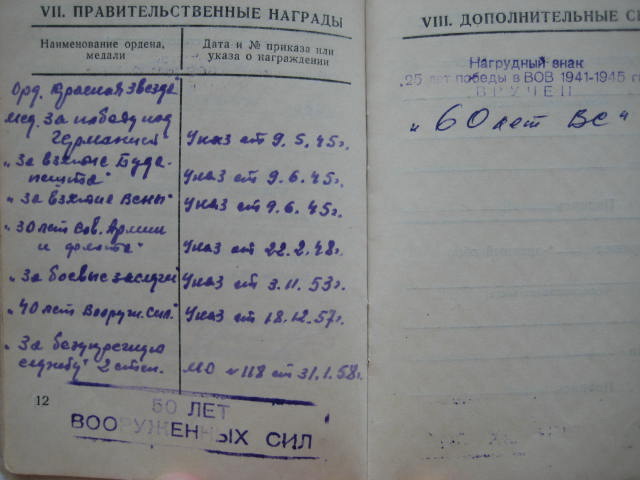 VII. ПРАВИТЕЛЬСТВЕННЫЕ НАГРАДЫ
Наименование ордена, медали
Дата и № приказа или указа о награждении
Орд. Красная Звезда
Мед. За победу над Германией
Указ от 9.5.45г.
"За взятие Будапешта"
Указ от 9.6.45г.
"За взятие Вены"
Указ от 9.6.45г.
"30 лет Сов. Армии и флота"
Указ от 22.2.48г.
"За боевые заслуги"
Указ от 3.11.53г.
"40 лет Вооруж. Сил."
Указ от 18.12.57г.
"За безупречную службу" 2 степ.
МО № 118 от 31.1.58г.
12
50 ЛЕТ
ВООРУЖЕННЫХ СИЛ
VIII. ДОПОЛНИТЕЛЬНЫЕ
Нагрудный знак
25 лет победы в ВОВ 1941-1945
ВРУЧЕН
"60 лет ВС"